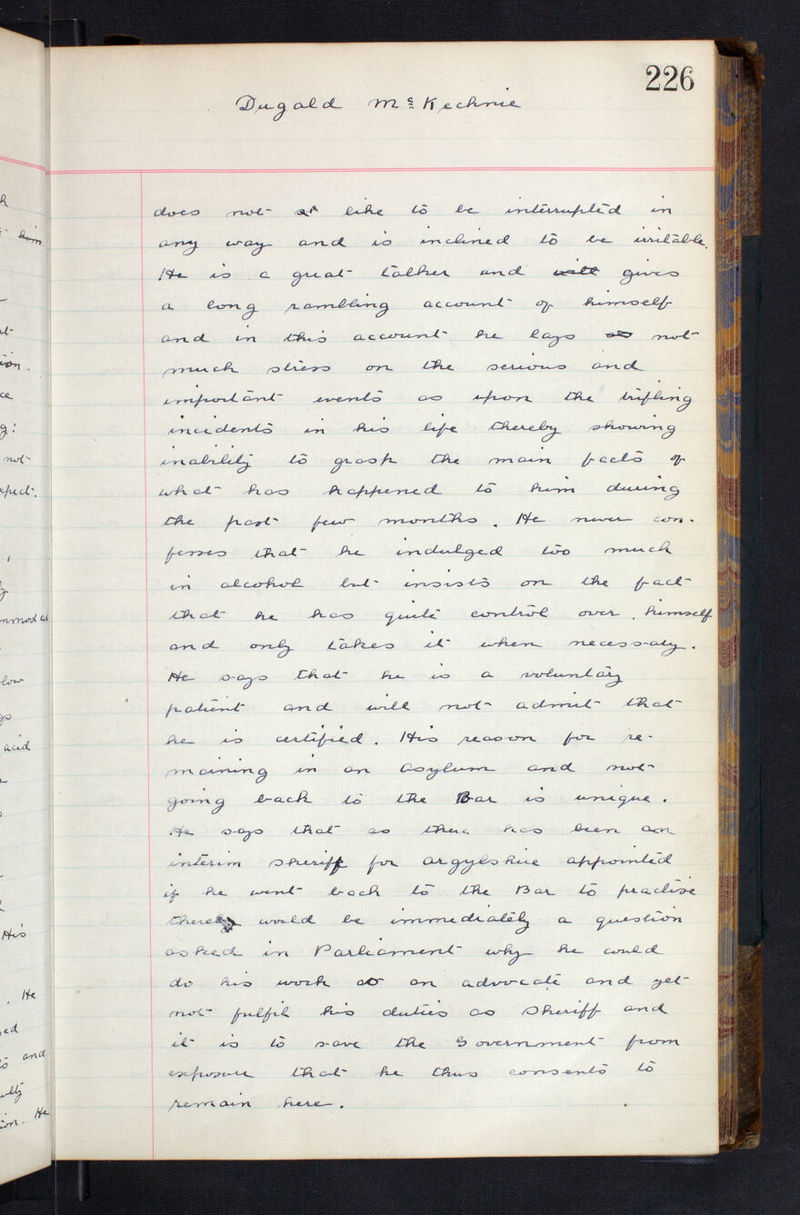 226
Dugald McKechnie
does not like to be interrupted in
any way and is inclined to be irritable.
He is a great talker and will gives
a long rambling account of himself
and in this account he lays as not
much stress on the serious and
important events as upon the trifling
incidents in his life thereby showing
inability to grasp the main facts of
what has happened to him during
the past few months. He never con-
fesses that he indulged too much
in alcohol but insists on the fact
that he has quite control over himself
and only takes it when necessary.
He says that he is a voluntary
patient and will not admit that
he is certified. His reason for re-
maining in an asylum and not
going back to the Bar is unique.
He says that as there has been an
interim sheriff for argyleshire appointed
if he went back to the Bar to practise
there would be immediately a question
asked in Parliament why he could
do his work as an advocate and yet
not fulfil his duties as Sheriff and
it is to save the Government from
exposure that he thus consents to
remain here.
him
ion.
not
acid
His
. He
and
ion. He